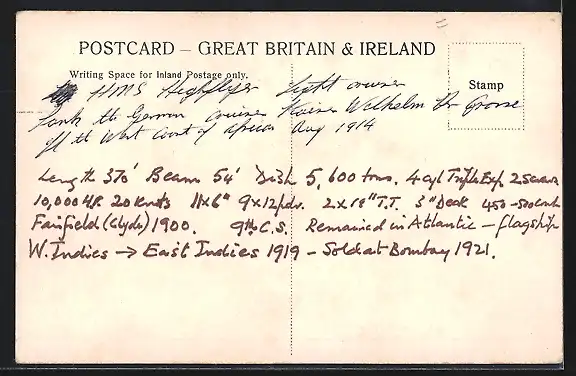 POSTCARD – GREAT BRITAIN & IRELAND
Writing Space for Inland Postage only.
Stamp
HMS Highflyer light cruiser
Sank the German cruiser Kaiser Wilhelm Der Grosse
off the West Coast of Africa Aug 1914
Length 370' Beam 54' Disp 5,600 tons. 4 cyl Triple Exp. 2 Screws
10,000 HP. 20 knots 11x6" 9x12pdr. 2x18" T.T. 3" Deck 450-500
Fairfield (Clyde) 1900. 9th C.S. Remained in Atlantic – flagship
W. Indies → East Indies 1919 – Sold at Bombay 1921.